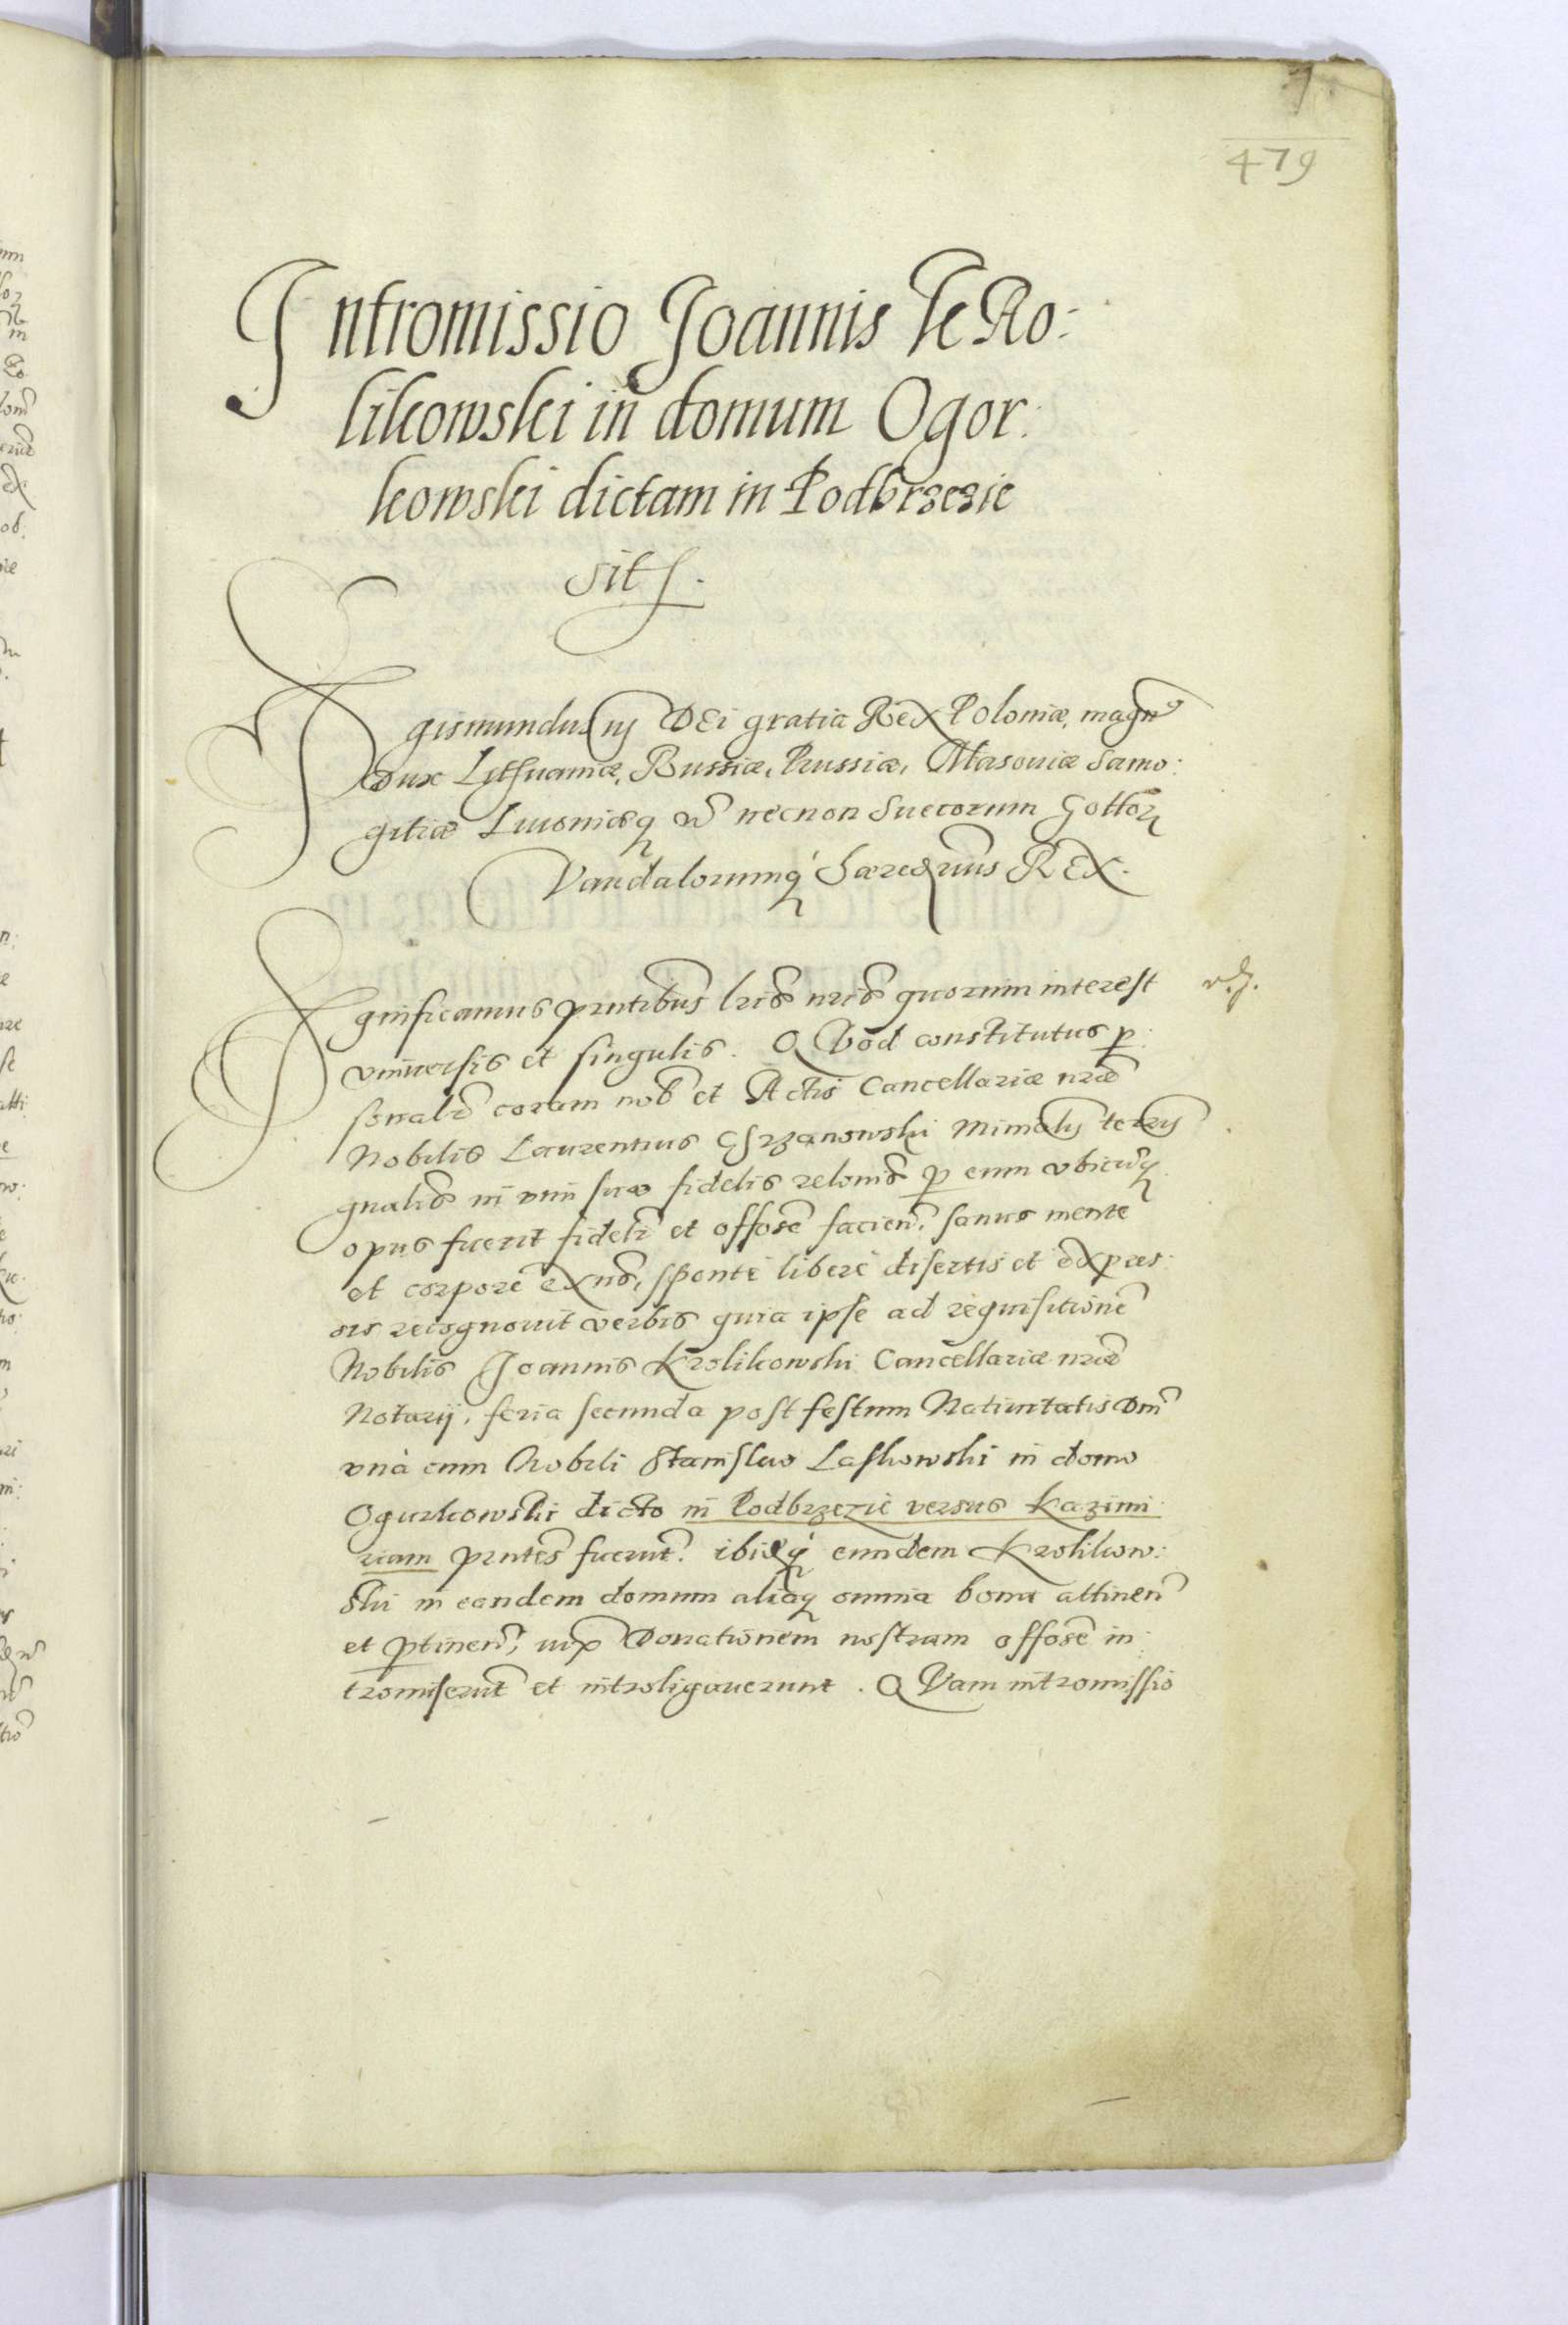 479
Intromissio Joannis KRo:
likowski in domum Ogor:
kowski dictam in Podbrzezie
sit.
Sigismundus iij DEi gratia REX Poloniæ, magn9
Dux Lithuaniæ, Russiæ, Prussiæ, Masouiæ Samo:
gitiæ Liuoniæq necnon Suecorum Gottor
Vandalorumq hæredrius REX.
Significamus pntibus lris nris quorum interest
vniuersis et singulis. QVod constitutus p:
sonalr coram nob et Actis Cancellariæ nræ
Nobilis Laurentius Chrzanowski Ministerialis
gnalis in vim suæ fidelis relonis p eum vbicunq
opus fuerit fidelr et offose facien, sanus mente
et corpore exns, sponte libere disertis et expres:
sis recognouit verbis quia ipse ad requisitione
Nobilis Joannis Krolikowski Cancellariæ nræ
Notarij, feria secunda post festum Natiuitatis Dni
vnà cum Nobili Stanislao Laskowski in domo
Ogurkowski dicto in Podbrzezie versus Kazimi:
riam pntes fuerut. ibiq eundem Krolikow:
ski in eandem domum aliaq omnia bona attinen
et ptinen, iux Donationem nostram offose in:
tromiserut et introligauerunt. QVam intromissio